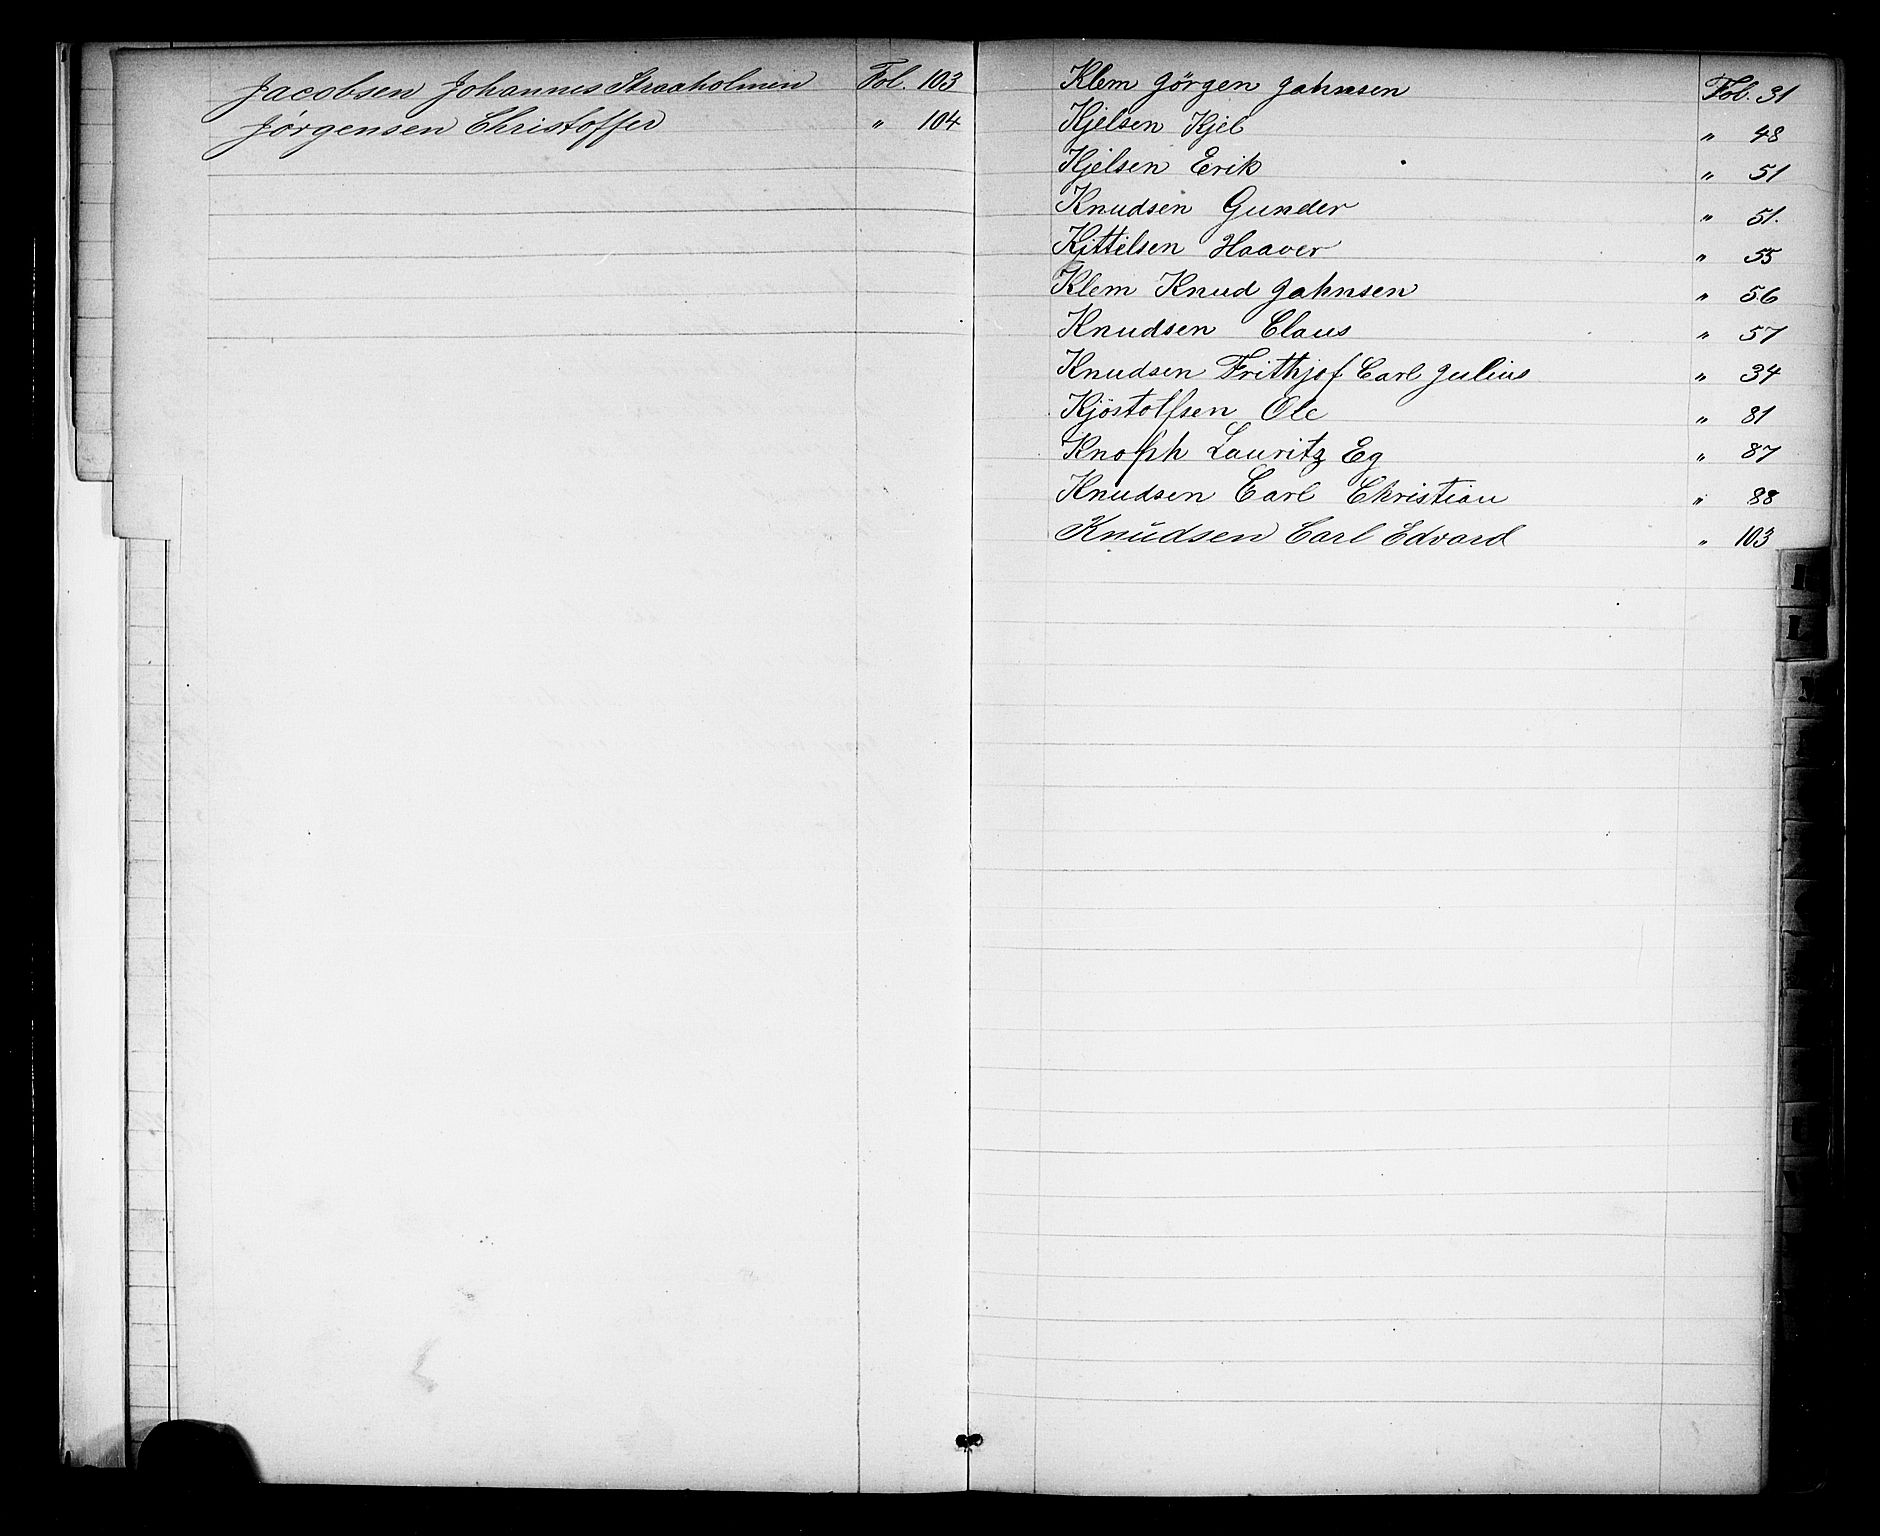 Jacobsen Johannes Straaholmen Fol. 103
Jörgensen Christoffer " 104
Klem Jörgen Jahnsen Fol. 31
Kjelsen Kjel " 48
Kjelsen Erik " 51
Knudsen Gunder " 51.
Kittilsen Haaver " 55
Klem Knud Jahnsen " 56
Knudsen Claus " 57
Knudsen Frithjof Carl Julius " 34
Kjöstolfsen Ole " 81
Knoph Lauritz Eg " 87
Knudsen Carl Christian " 88
Knudsen Carl Edvard " 103